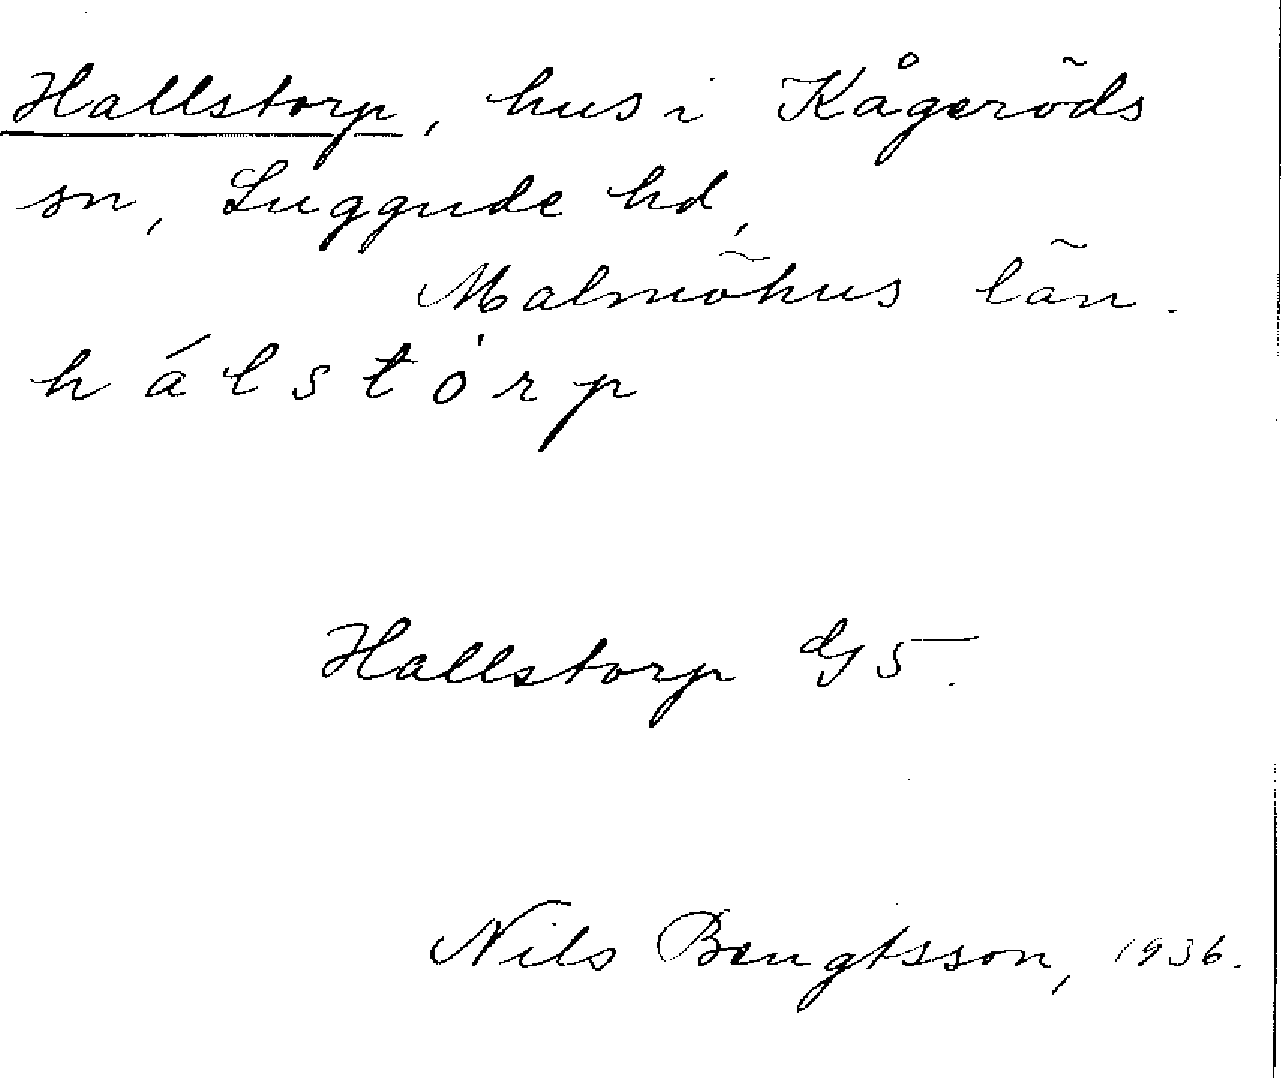 Hallstorp, hus i Kågeröds
sn, Luggude hd,
Malmöhus län.
hálstȯrp
Hallstorp G5.
Nils Bengtsson, 1936.